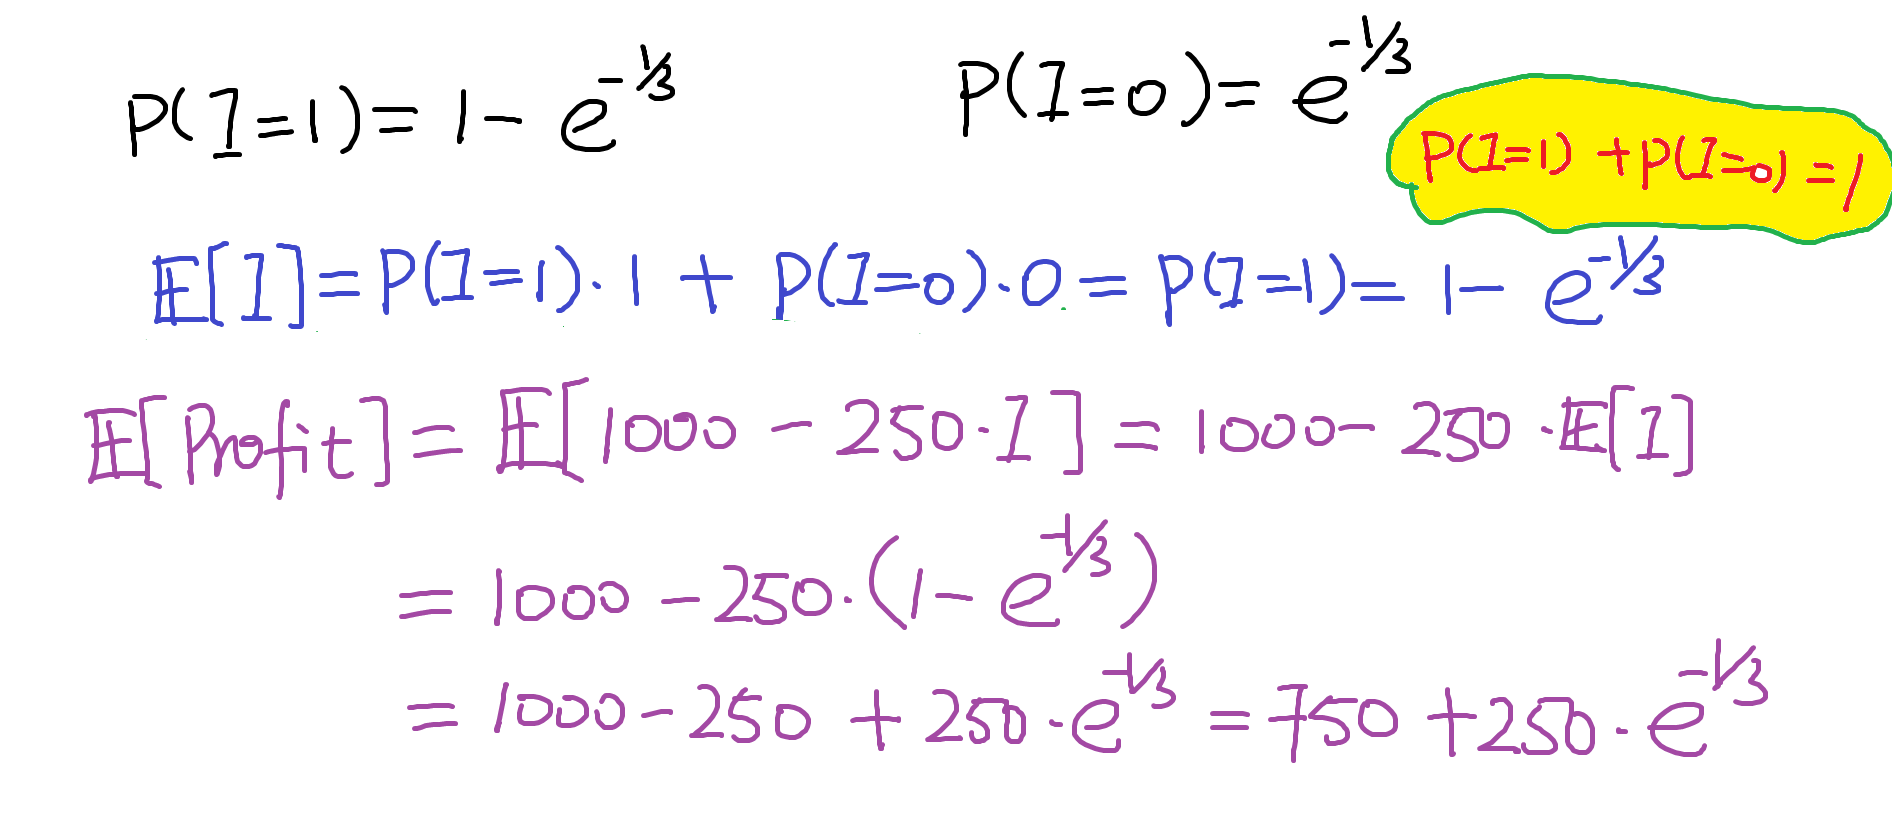 P(I=1) = 1 - e^{-1/3}
P(I=0) = e^{-1/3}
P(I=1) + P(I=0) = 1
𝔼[I] = P(I=1)·1 + P(I=0)·0 = P(I=1) = 1 - e^{-1/3}
𝔼[Profit] = 𝔼[1000 - 250·I] = 1000 - 250·𝔼[I]
= 1000 - 250·(1 - e^{-1/3})
= 1000 - 250 + 250·e^{-1/3} = 750 + 250·e^{-1/3}